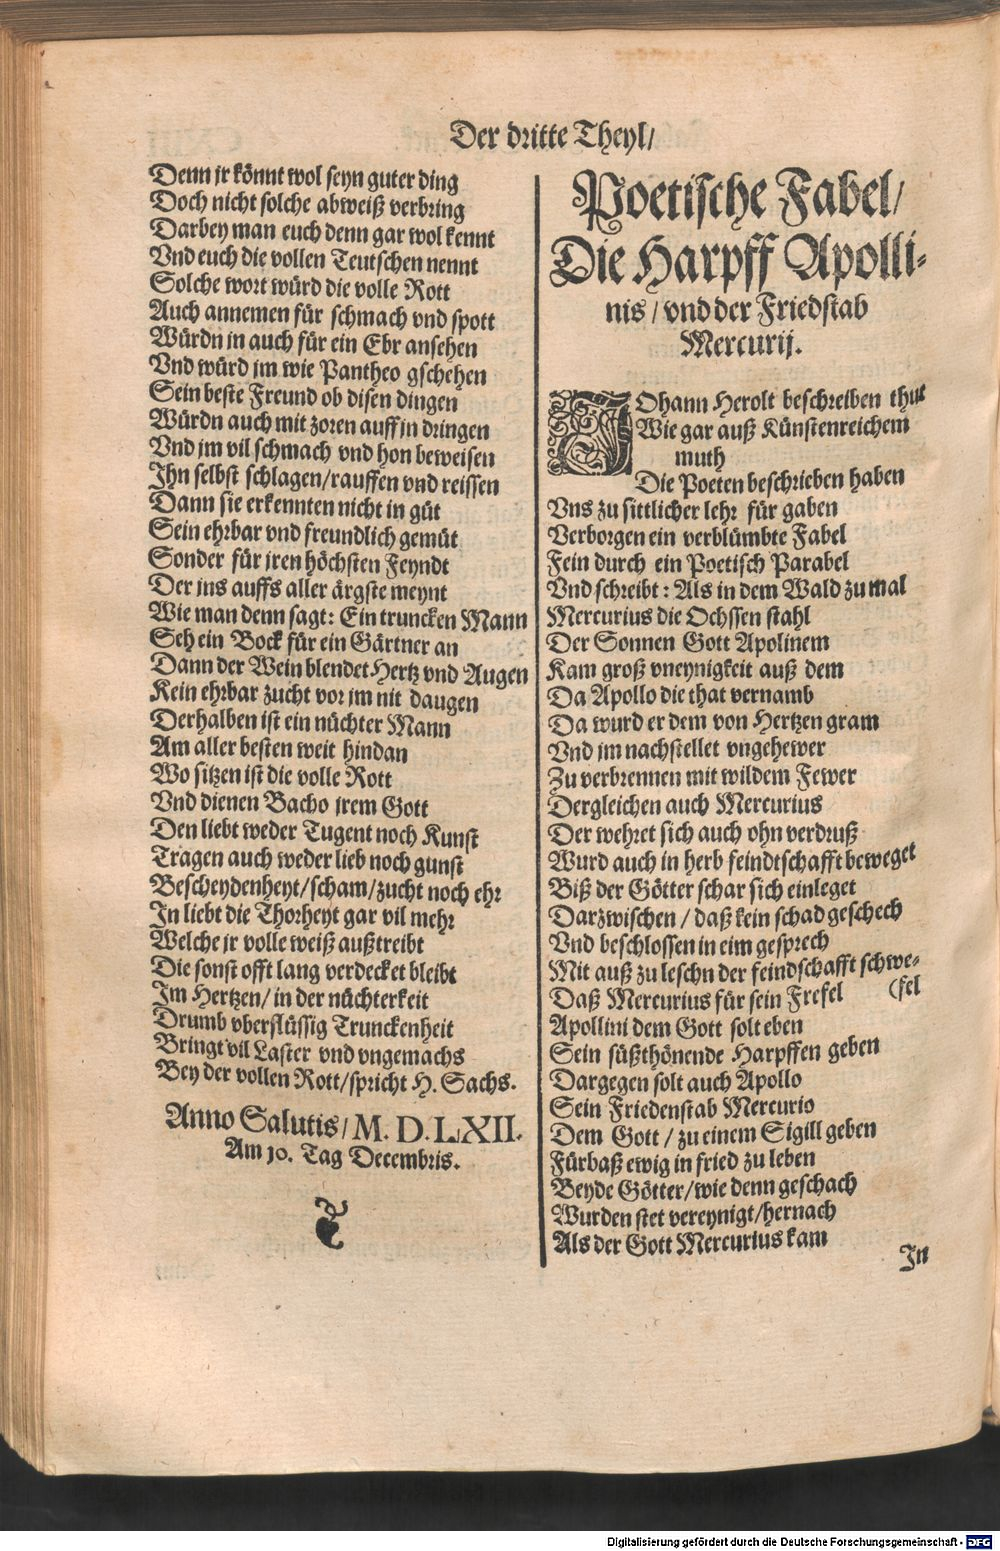 Der dritte Theyl/
Denn jr könnt wol seyn guter ding
Doch nicht solche abweiß verbring
Darbey man euch denn gar wol kennt
Vnd euch die vollen Teutschen nennt
Solche wort würd die volle Rott
Auch annemen für schmach vnd spott
Würdn in auch für ein Ebr ansehen
Vnd würd jm wie Pantheo gschehen
Sein beste Freund ob disen dingen
Würdn auch mit zoren auff jn dringen
Vnd jm vil schmach vnd hon beweisen
Jhn selbst schlagen/rauffen vnd reissen
Dann sie erkennten nicht in güt
Sein ehrbar vnd freundlich gemüt
Sonder für jren höchsten Feyndt
Der jns auffs aller ärgste meynt
Wie man denn sagt: Ein truncken Mann
Seh ein Bock für ein Gärtner an
Dann der Wein blendet Hertz vnd Augen
Kein ehrbar zucht vor jm nit daugen
Derhalben ist ein nüchter Mann
Am aller besten weit hindan
Wo sitzen ist die volle Rott
Vnd dienen Bacho jrem Gott
Den liebt weder Tugent noch Kunst
Tragen auch weder lieb noch gunst
Bescheydenheyt/scham/zucht noch ehr
Jn liebt die Thorheyt gar vil mehr
Welche jr volle weiß außtreibt
Die sonst offt lang verdecket bleibt
Im Hertzen/ in der nüchterkeit
Drumb vberflüssig Trunckenheit
Bringt vil Laster vnd vngemachs
Bey der vollen Rott/spricht H. Sachs.
Anno Salutis/ M. D. LXII.
Am 10. Tag Decembris.
Poetische Fabel/
Die Harpff Apolli-
nis/ vnd der Friedstab
Mercurij.
JOhann Herolt beschreiben thut
Wie gar auß Künstenreichem
muth
Die Poeten beschrieben haben
Vns zu sittlicher lehr für gaben
Verborgen ein verblümbte Fabel
Fein durch ein Poetisch Parabel
Vnd schreibt: Als in dem Wald zu mal
Mercurius die Ochssen stahl
Der Sonnen Gott Apolinem
Kam groß vneynigkeit auß dem
Da Apollo die that vernamb
Da wurd er dem von Hertzen gram
Vnd jm nachstellet vngehewer
Zu verbrennen mit wildem Fewer
Dergleichen auch Mercurius
Der wehret sich auch ohn verdruß
Wurd auch in herb feindtschafft beweget
Biß der Götter schar sich einleget
Darzwischen/ daß kein schad geschech
Vnd beschlossen in eim gesprech
Mit auß zu leschn der feindschafft schwe-
Daß Mercurius für sein Frefel (fel
Apollini dem Gott solt eben
Sein süßthönende Harpffen geben
Dargegen solt auch Apollo
Sein Friedenstab Mercurio
Dem Gott/ zu einem Sigill geben
Fürbaß ewig in fried zu leben
Beyde Götter/wie denn geschach
Wurden stet vereynigt/hernach
Als der Gott Mercurius kam
Jn
Digitalisierung gefördert durch die Deutsche Forschungsgemeinschaft - DFG